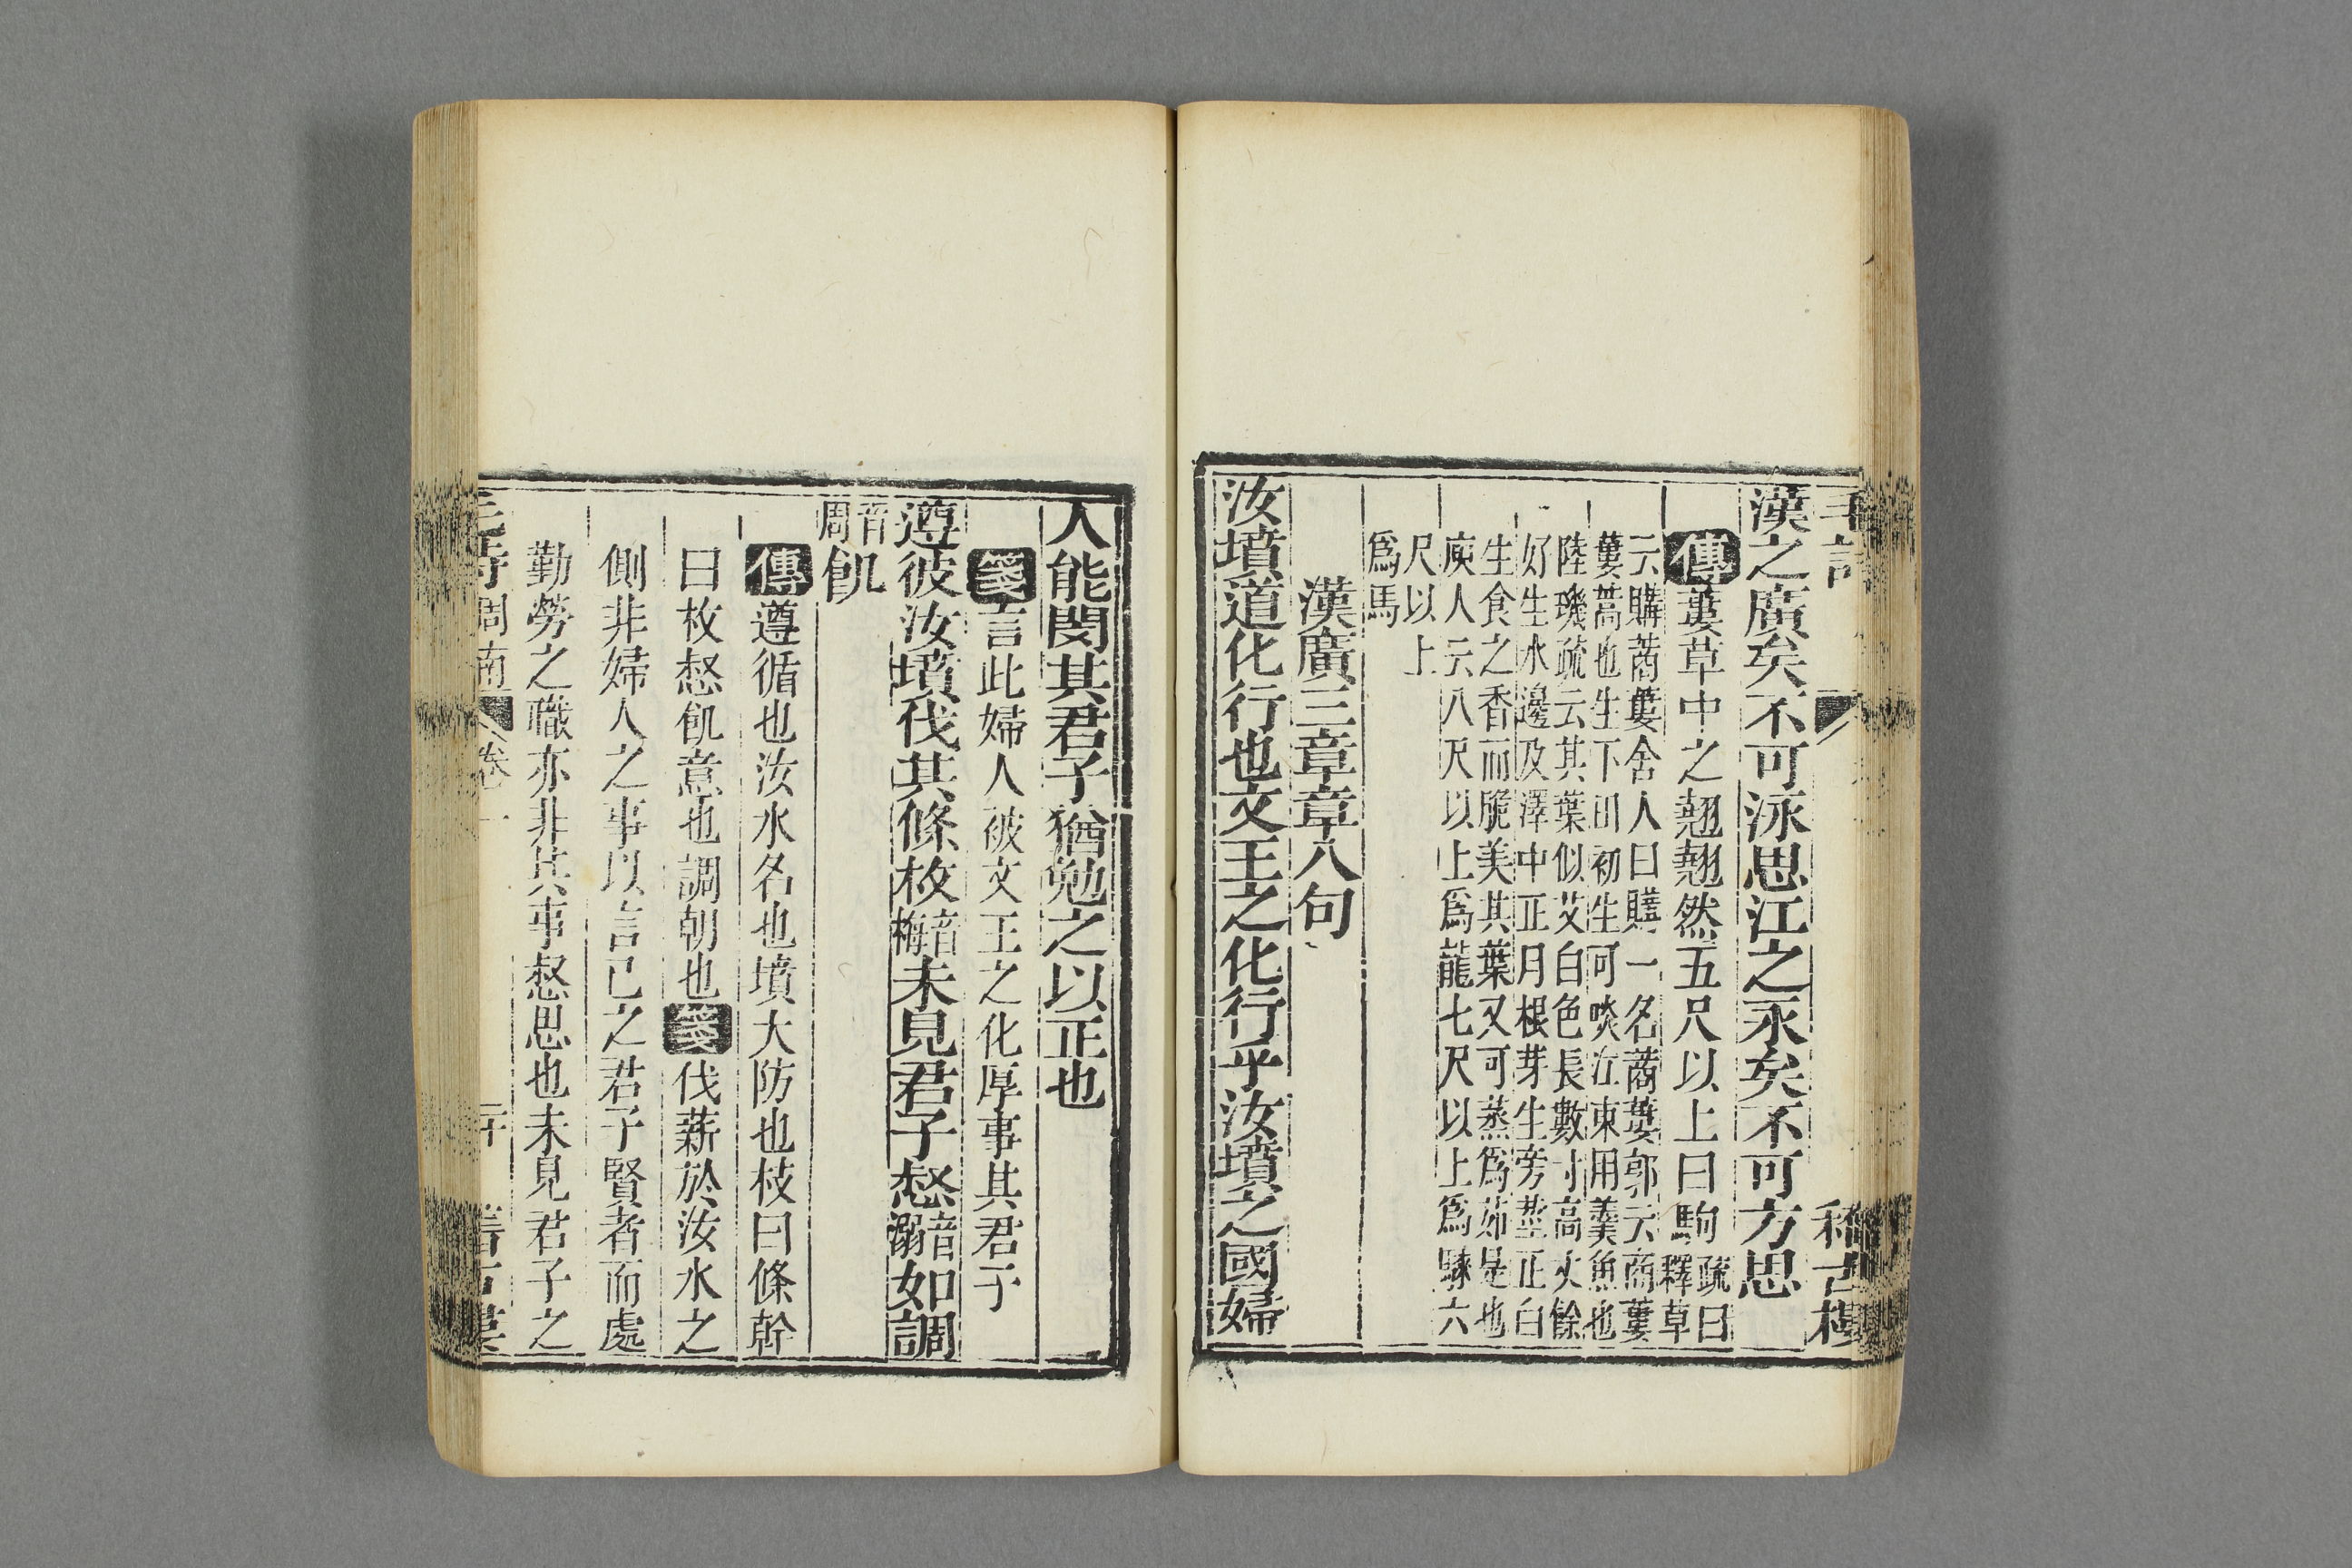 毛詩
稽古樓
漢之廣矣不可泳思江之永矣不可方思
傳蔞草中之翹翹然五尺以上曰駒疏曰釋草
云購蔏蔞舍人曰購一名蔏蔞郭云蔏蔞
蔞蒿也生下田初生可啖江東用羹魚也
陸璣疏云其葉似艾白色長數寸高丈餘
好生水邊及澤中正月根芽生旁莖正白
生食之香而脆美其葉又可蒸為茹是也
庾人云八尺以上爲龍七尺以上爲騋六
尺以上
爲馬
漢廣三章章八句
汝墳道化行也文王之化行乎汝墳之國婦
人能閔其君子猶勉之以正也
箋言此婦人被文王之化厚事其君子
遵彼汝墳伐其條枚音梅未見君子惄音溺如調
音周飢
傳遵循也汝水名也墳大防也枝曰條幹
曰枚惄飢意也調朝也箋伐薪於汝水之
側非婦人之事以言己之君子賢者而處
勤勞之職亦非其事惄思也未見君子之
毛詩周南 卷一